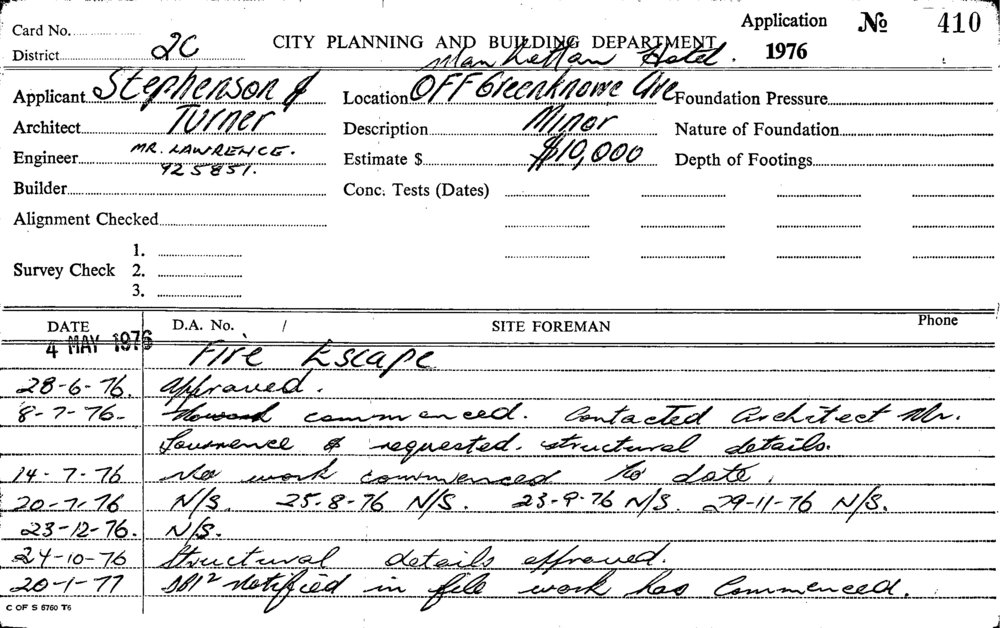 Card No. Application No 410
District 2C CITY PLANNING AND BUILDING DEPARTMENT 1976
Manhattan Hotel.
Applicant Stephenson & Location OFF Greenknowe Ave Foundation Pressure
Architect Turner Description Minor Nature of Foundation
Engineer MR. LAWRENCE. Estimate $ $10,000 Depth of Footings
925851.
Builder Conc. Tests (Dates)
Alignment Checked
1.
Survey Check 2.
3.
DATE D.A. No. / SITE FOREMAN Phone
4 MAY 1976 Fire Escape
28-6-76. Approved.
8-7-76- commenced. Contacted Architect Mr.
Lawrence & requested structural details.
14-7-76 No work commenced to date.
20-7-76 N/S. 25-8-76 N/S. 23-9-76 N/S. 29-11-76 N/S.
23-12-76. N/S.
24-10-76 Structural details approved.
20-1-77 notified in file work has Commenced.
C OF S 6760 T6